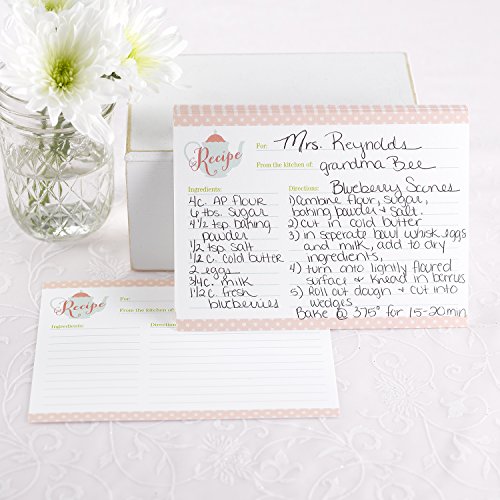 Recipe
For: Mrs. Reynolds
From the kitchen of: grandma Bee
Ingredients:
4c. AP flour
6 tbs. sugar
4 1/2 tsp baking
powder
1/2 tsp salt
1/2 c. cold butter
2 eggs
3/4c. milk
1 1/2 c. fresh
blueberries
Directions: Blueberry Scones
1) Combine flour, sugar,
baking powder & salt.
2) Cut in cold butter
3) in seperate bowl whisk eggs
and milk, add to dry
ingredients,
4) turn onto lightly floured
surface & knead in berries
5) Roll out dough & cut into
wedges
Bake @ 375° for 15-20min
Recipe
For:
From the kitchen of:
Ingredients: